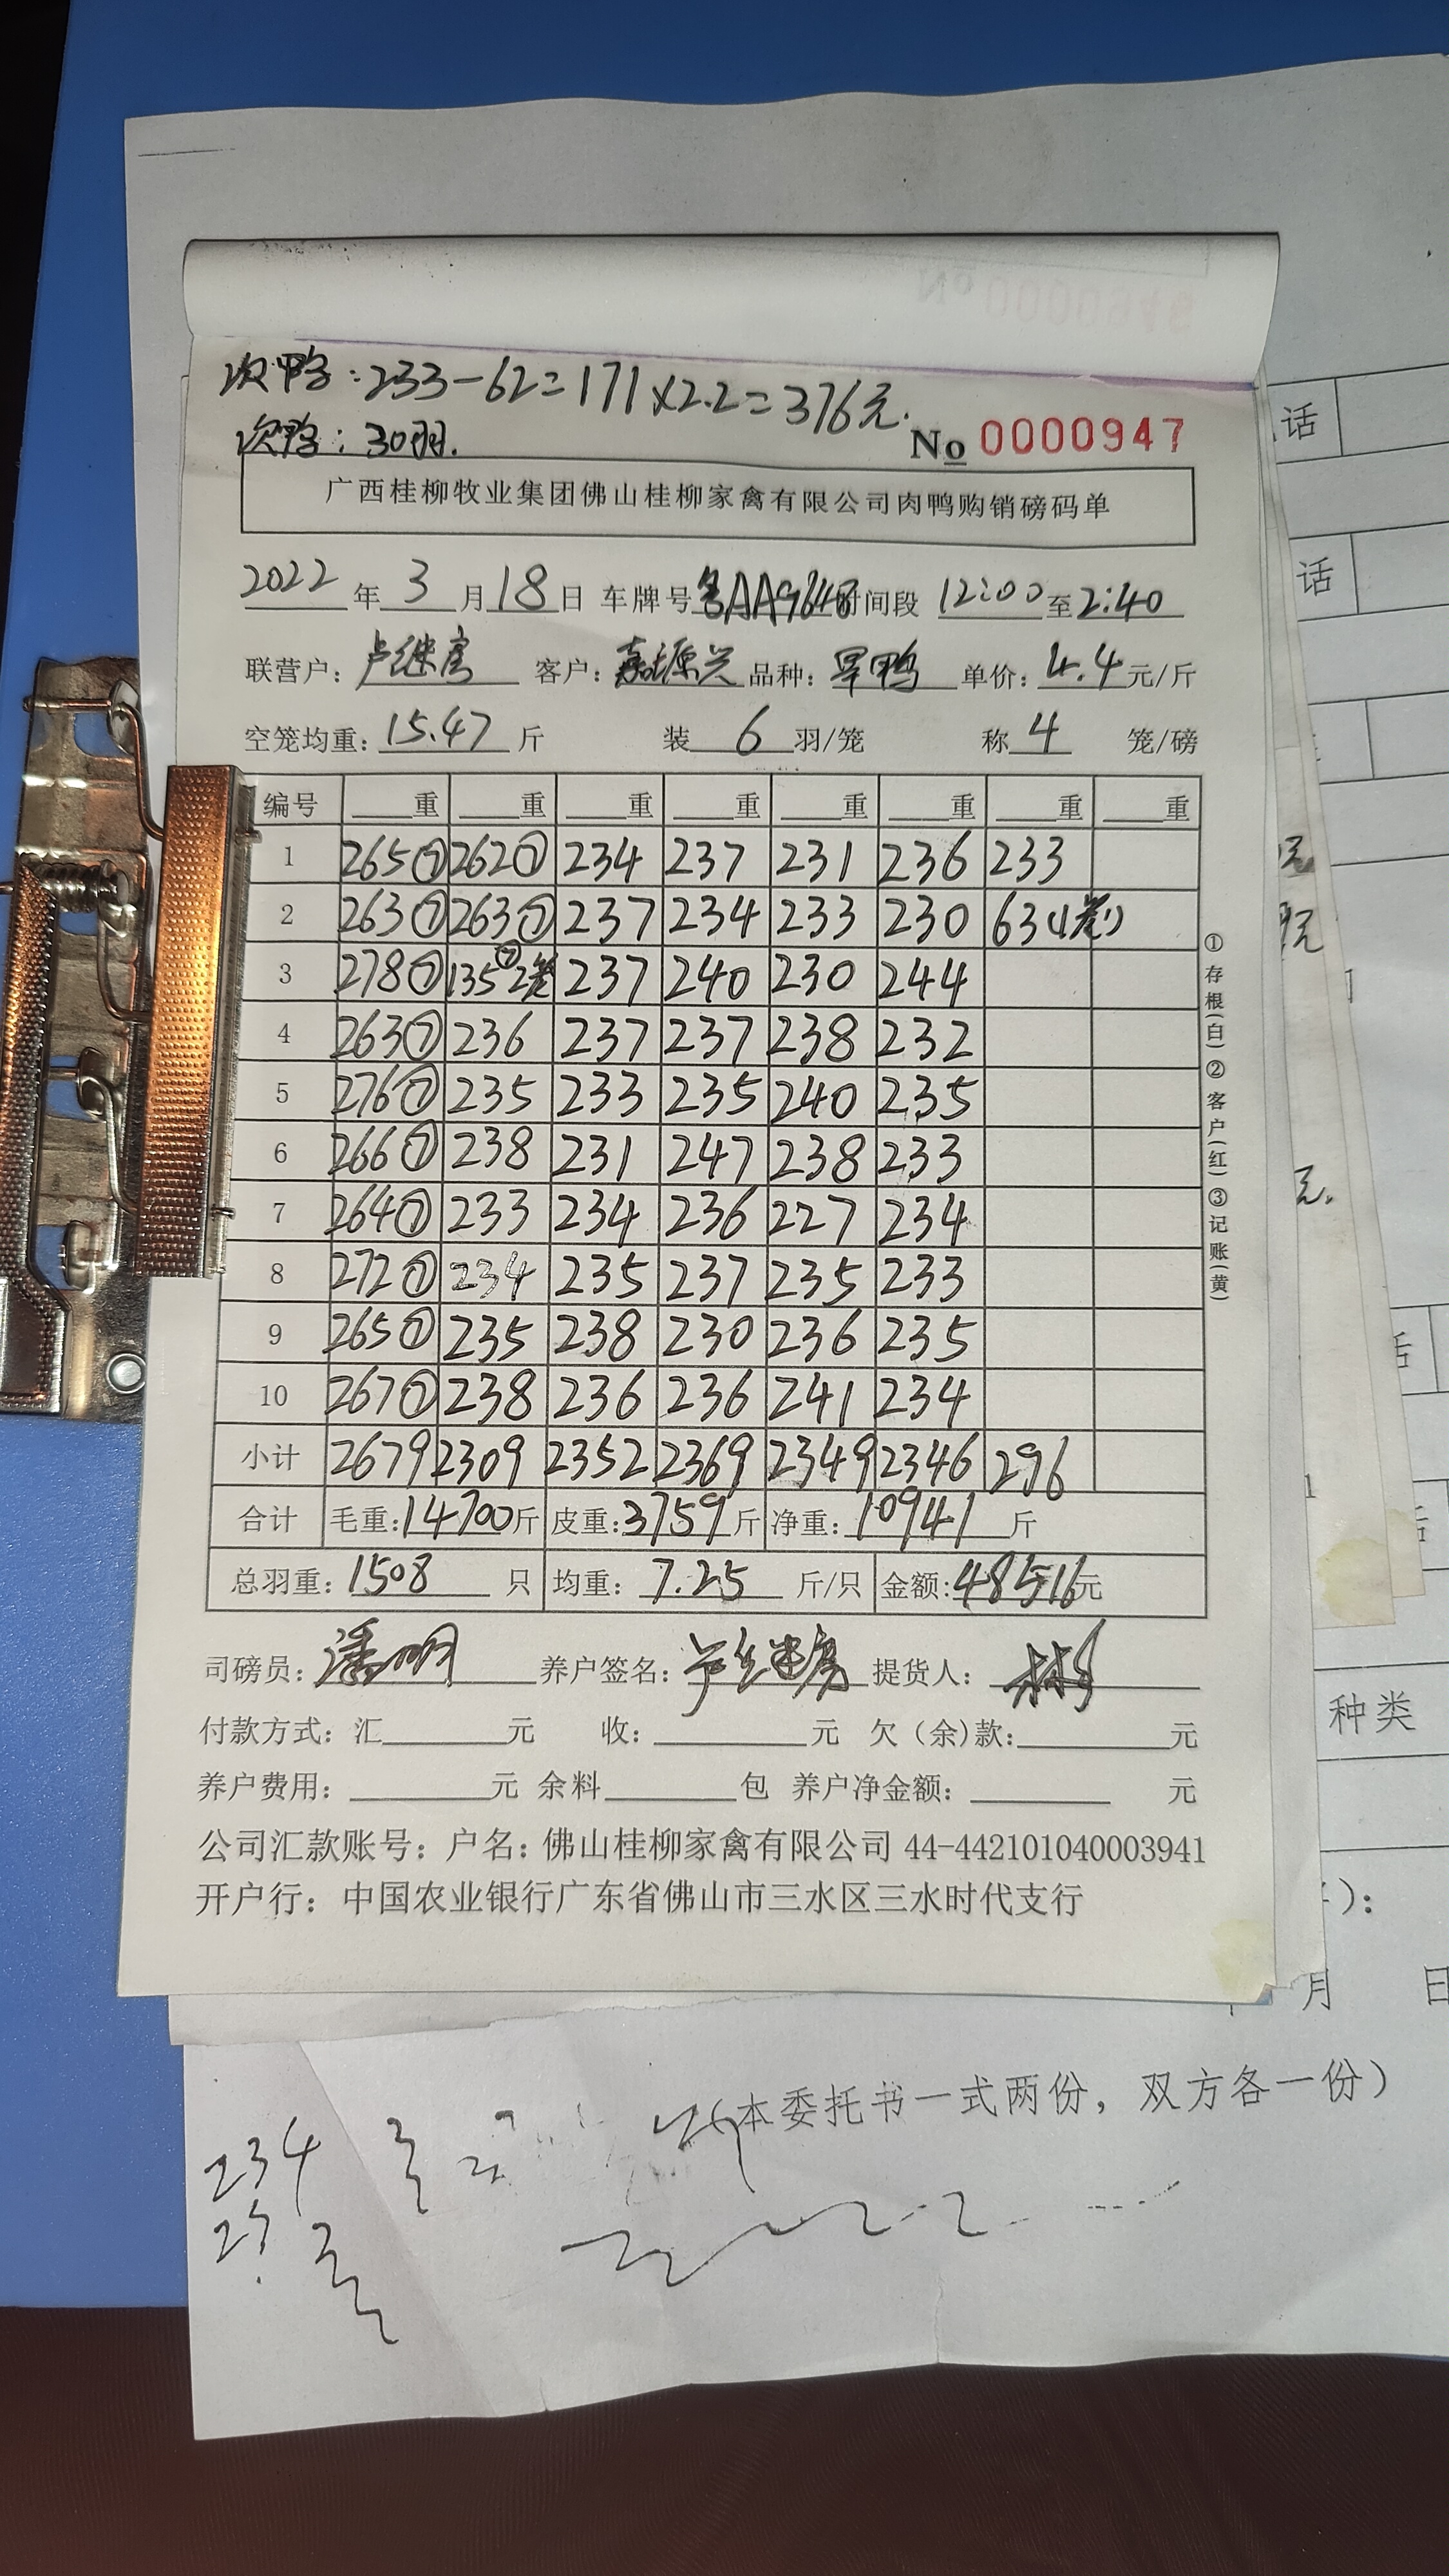 次鸭:233-62=171×2.2=376元.
次鸭:30羽.
No 0000947
广西桂柳牧业集团佛山桂柳家禽有限公司肉鸭购销磅码单
2022年3月18日 车牌号 时间段 12:00至2:40
联营户:卢继房 客户:嘉源兴 品种:旱鸭 单价:4.4元/斤
空笼均重:15.47斤 装6羽/笼 称4笼/磅
编号 重 重 重 重 重 重 重 重
1 265⑦ 262⑦ 234 237 231 236 233
2 263⑦ 263⑦ 237 234 233 230 63(1笼)
3 278⑦ 135⑦2笼 237 240 230 244
4 263⑦ 236 237 237 238 232
5 276⑦ 235 233 235 240 235
6 266⑦ 238 231 247 238 233
7 264⑦ 233 234 236 227 234
8 272⑦ 234 235 237 235 233
9 265⑦ 235 238 230 236 235
10 267⑦ 238 236 236 241 234
小计 2679 2309 2352 2369 2349 2346 296
合计 毛重:14700斤 皮重:3759斤 净重:10941斤
总羽重:1508只 均重:7.25斤/只 金额:48516元
司磅员:潘明 养户签名:卢继房 提货人:
付款方式:汇 元 收: 元 欠(余)款: 元
养户费用: 元 余料 包 养户净金额: 元
公司汇款账号:户名:佛山桂柳家禽有限公司 44-442101040003941
开户行:中国农业银行广东省佛山市三水区三水时代支行
①存根(白)②客户(红)③记账(黄)
话
话
元
元
元.
种类
):
月 日
本委托书一式两份,双方各一份)
234